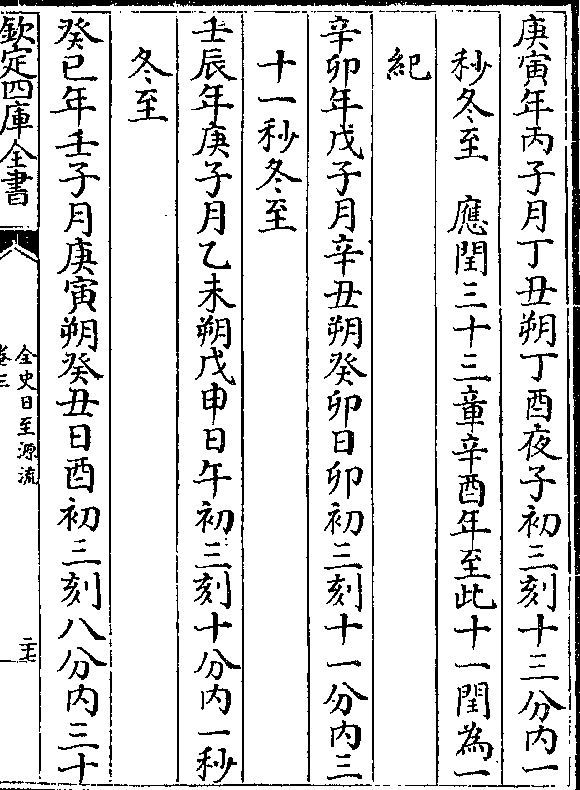 庚寅年丙子月丁丑朔丁酉夜子初三刻十三分内一
秒冬至　應閏三十三章辛酉年至此十一閏為一
紀
辛卯年戊子月辛丑朔癸卯日卯初三刻十一分内三
十一秒冬至
壬辰年庚子月乙未朔戊申日午初三刻十分内一秒
冬至
癸巳年壬子月庚寅朔癸丑日酉初三刻八分内三十
欽定四庫全書
全史日至源流
卷三